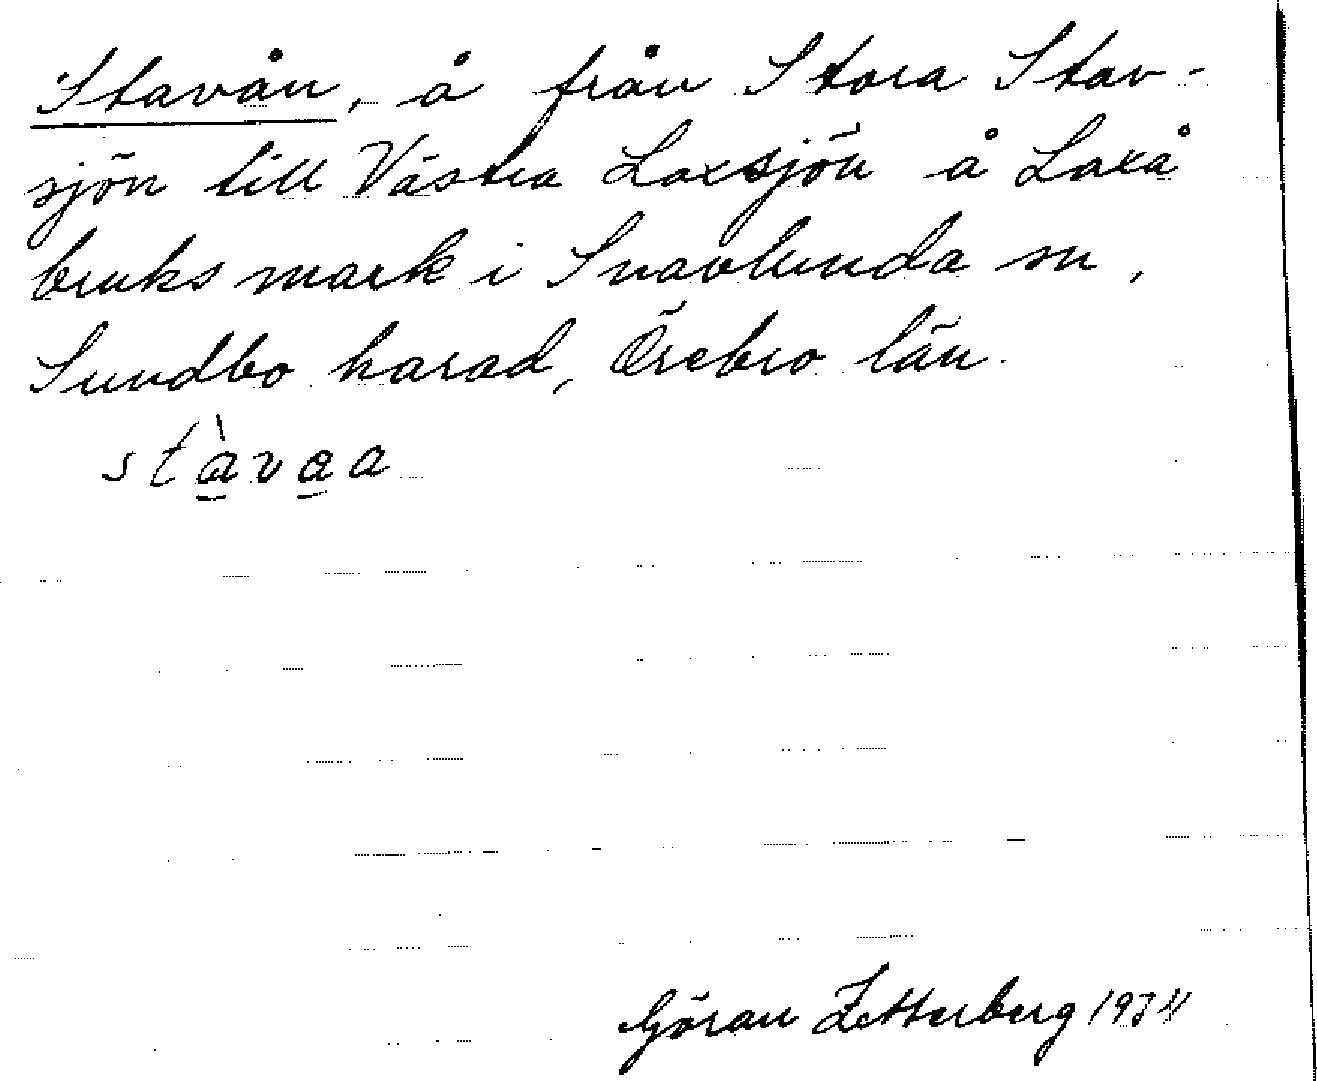 Stavån, å från Stora Stav-
sjön till Västra Laxsjön å Laxå
bruks mark i Snavlunda sn,
Sundbo harad, Örebro län.
stàvaa
Göran Zetterberg 1934